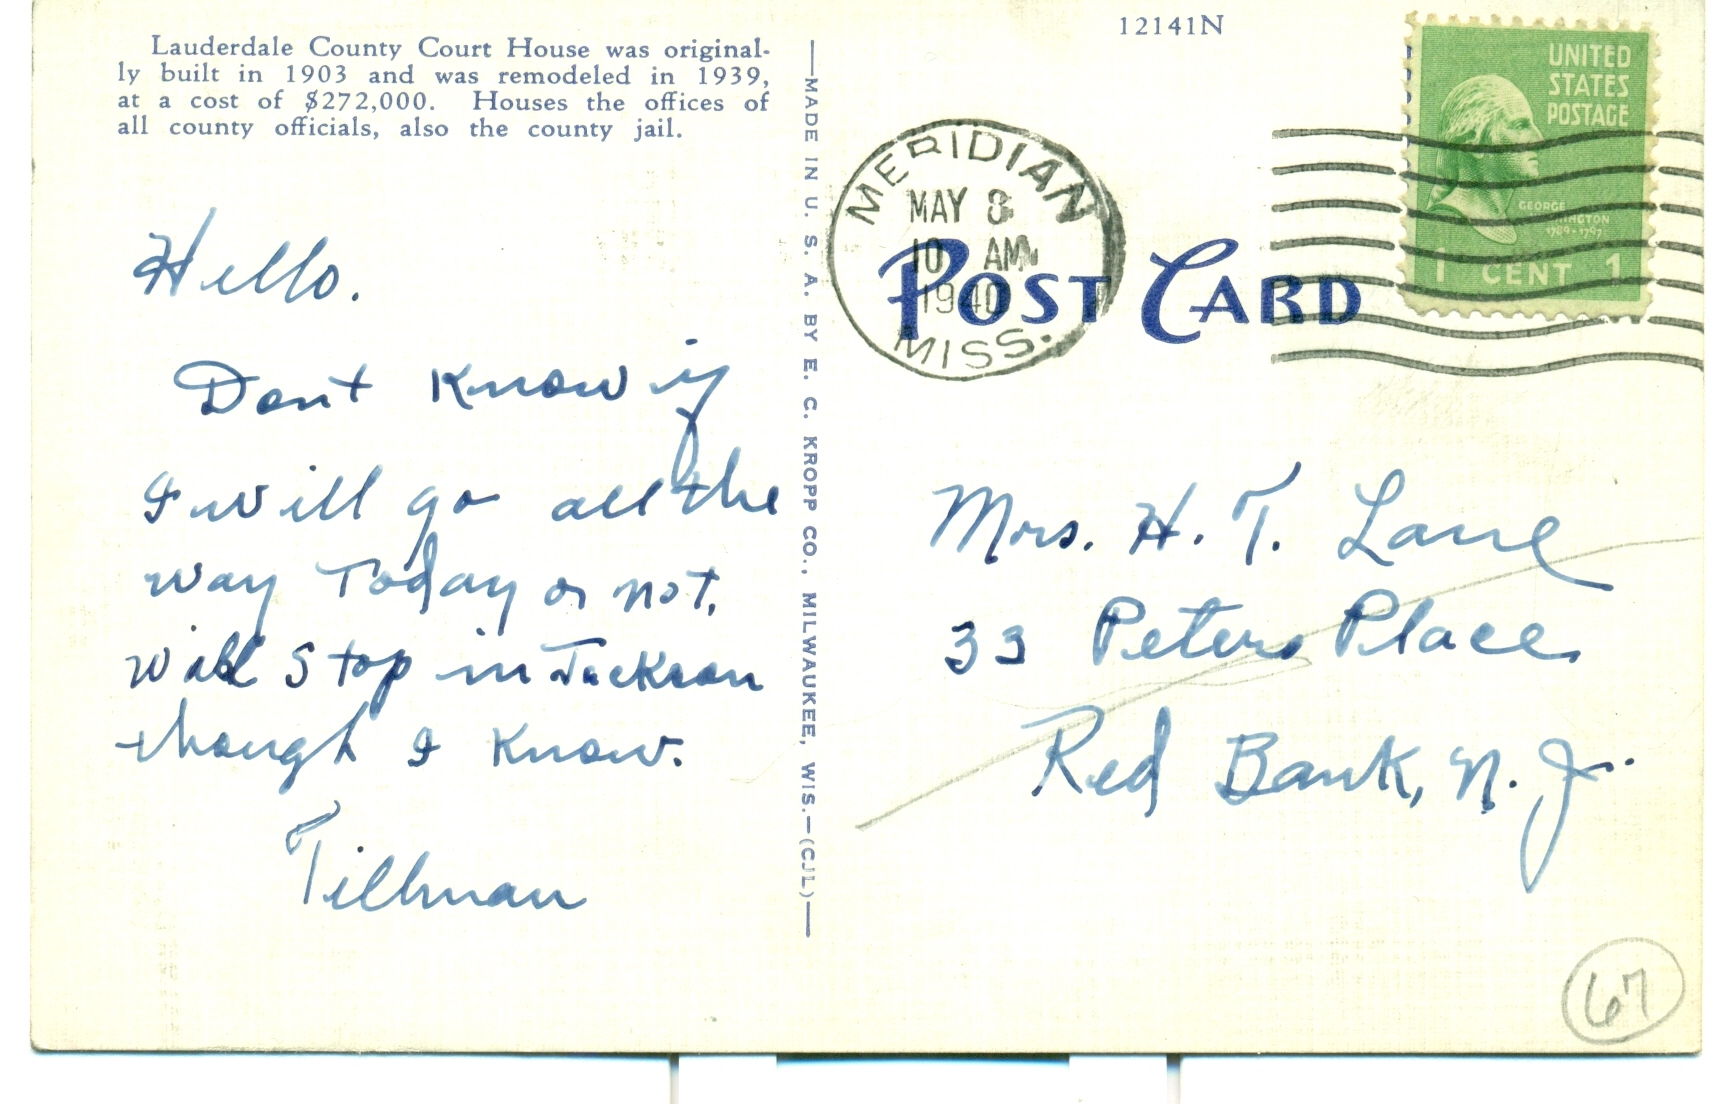 Lauderdale County Court House was original-
ly built in 1903 and was remodeled in 1939,
at a cost of $272,000. Houses the offices of
all county officials, also the county jail.
Hello.
Don't Know if
I will go all the
way Today or not.
Will Stop in Jackson
though I Know.
Tillman
—MADE IN U. S. A. BY E. C. KROPP CO., MILWAUKEE, WIS.—(CJL)—
12141N
MERIDIAN
MAY 8
10 AM
1940
MISS.
POST CARD
UNITED
STATES
POSTAGE
GEORGE
WASHINGTON
1789-1797
1 CENT 1
Mrs. H. T. Lane
33 Peters Place
Red Bank, N. J.
67